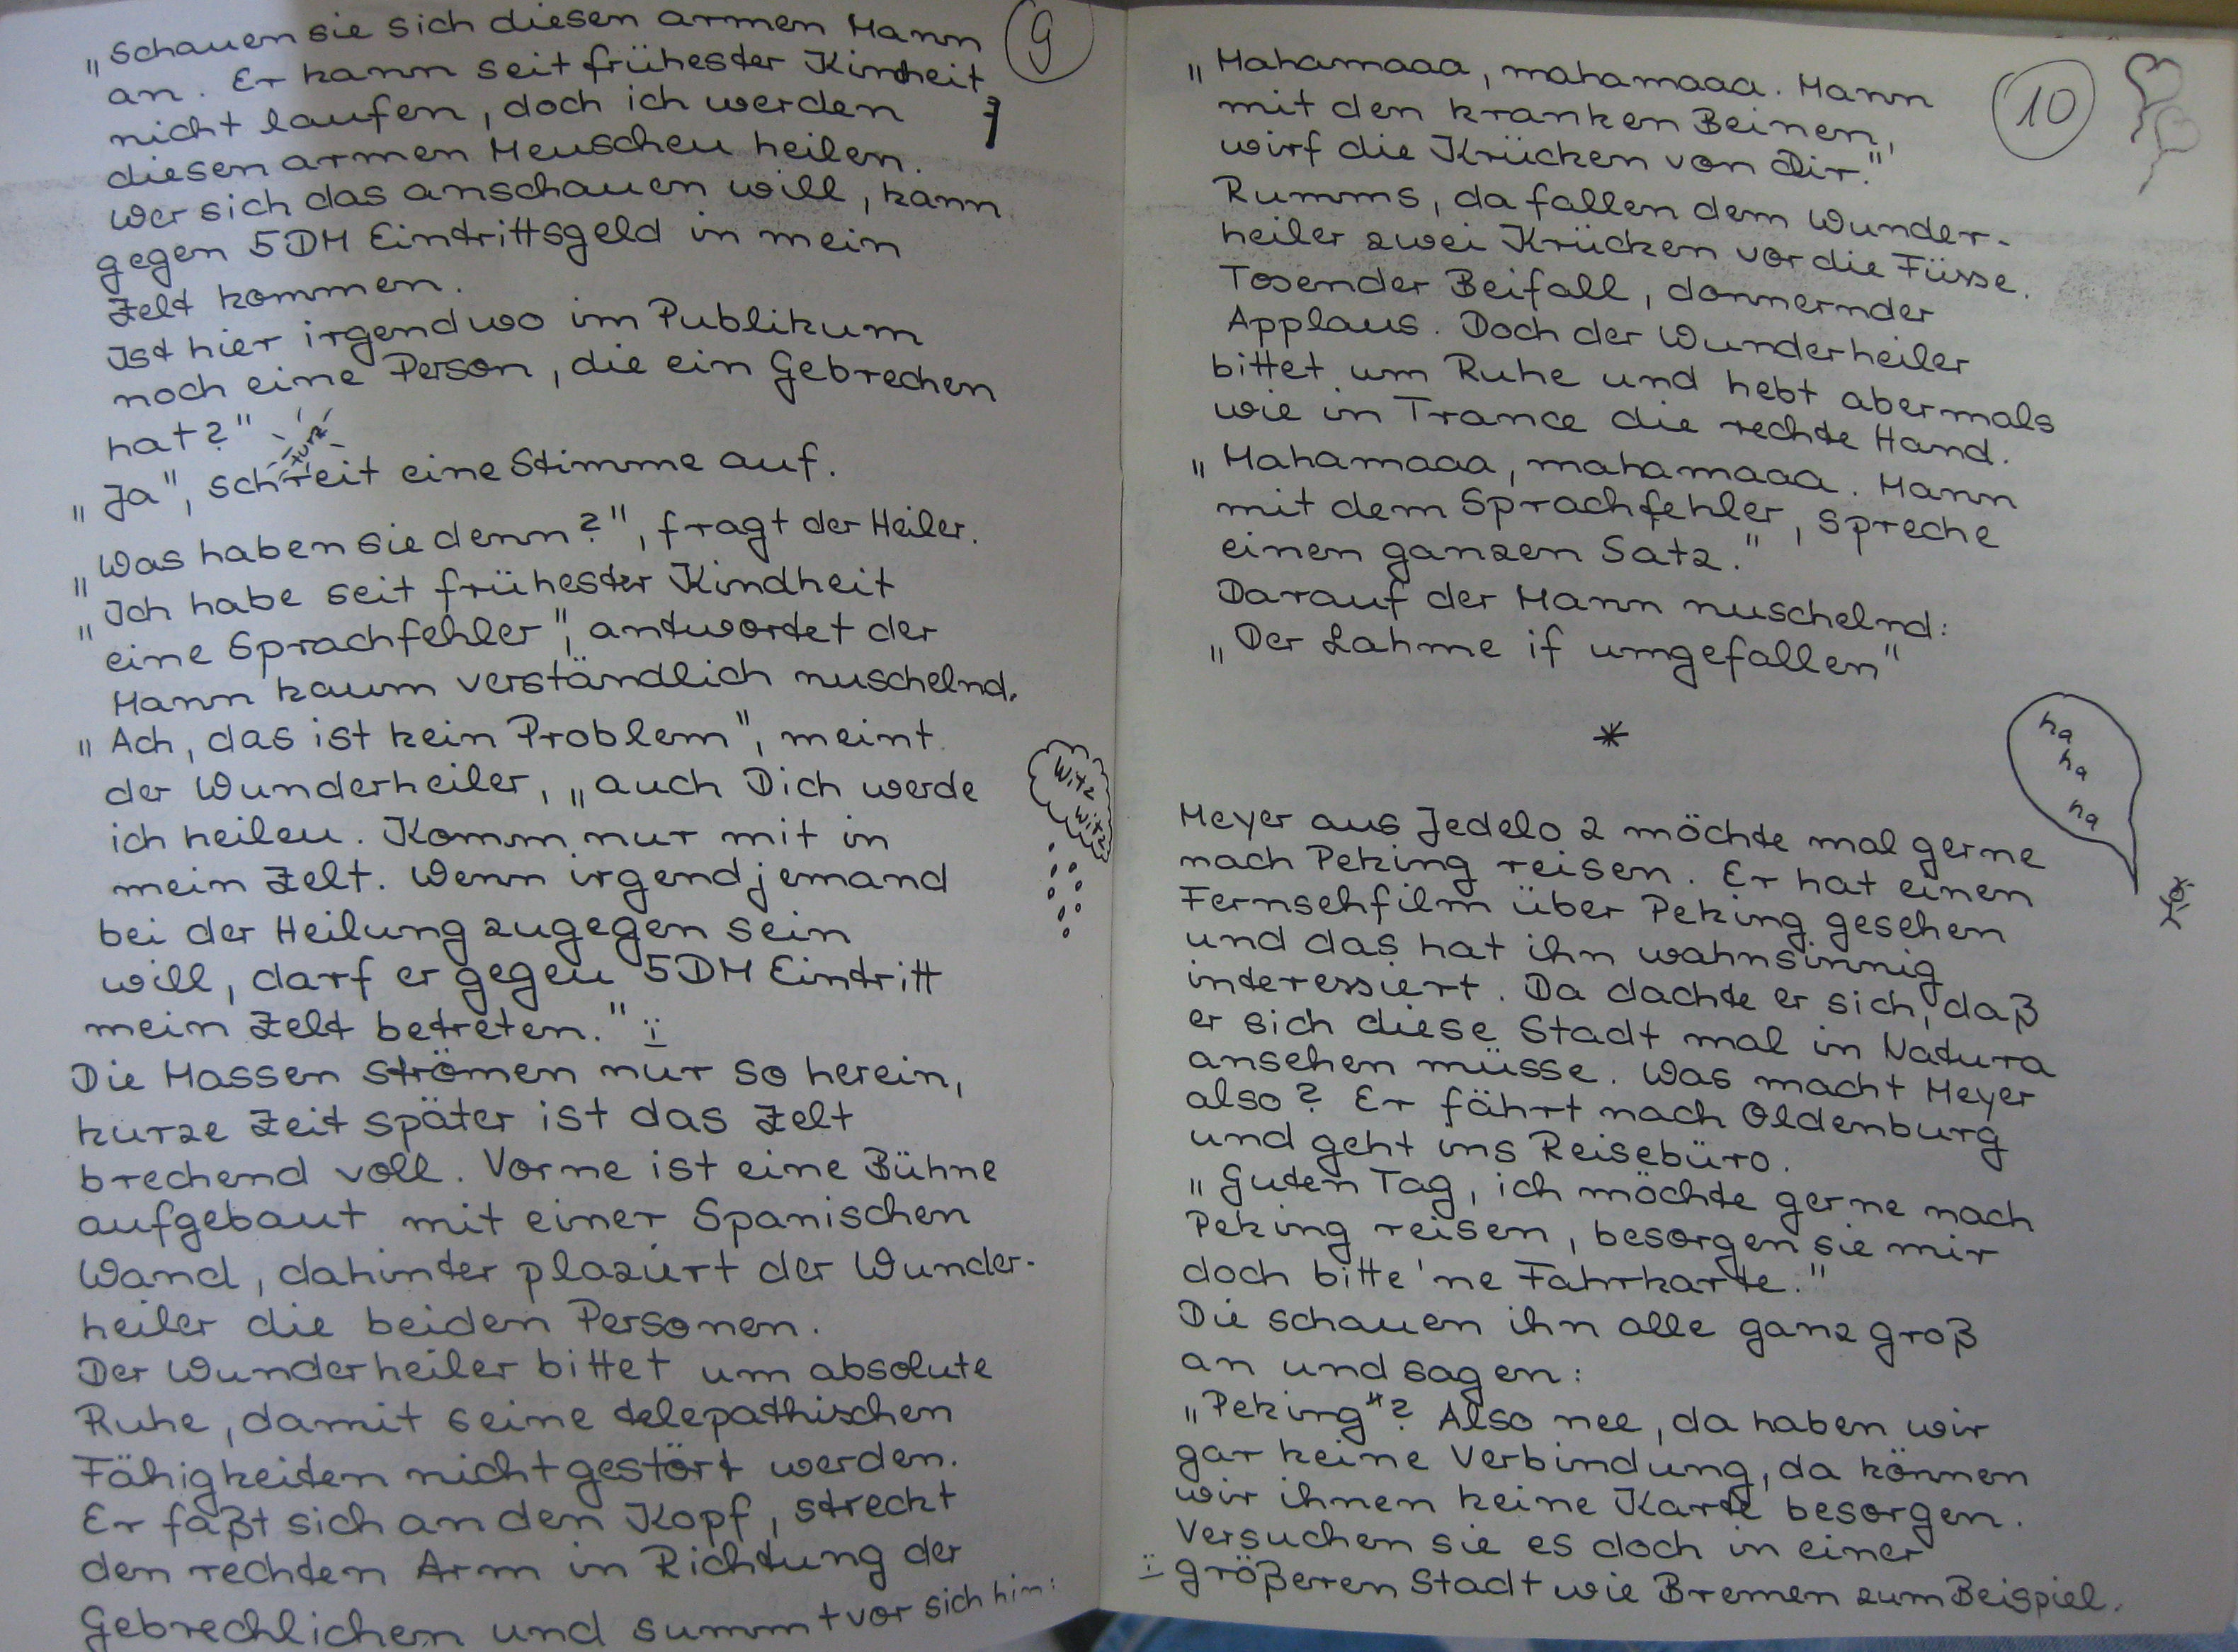 9
„Schauen sie sich diesen armen Mann
an. Er kann seit frühester Kindheit
nicht laufen, doch ich werden
diesen armen Menschen heilen.
Wer sich das anschauen will, kann
gegen 5DM Eintrittsgeld in mein
Zelt kommen.
Ist hier irgendwo im Publikum
noch eine Person, die ein Gebrechen
hat?"
„Ja", schreit eine Stimme auf.
„Was haben sie denn?", fragt der Heiler.
„Ich habe seit frühester Kindheit
eine Sprachfehler", antwortet der
Mann kaum verständlich nuschelnd.
„Ach, das ist kein Problem", meint
der Wunderheiler, „auch Dich werde
ich heilen. Komm nur mit in
mein Zelt. Wenn irgendjemand
bei der Heilung zugegen sein
will, darf er gegen 5DM Eintritt
mein Zelt betreten."
Die Massen strömen nur so herein,
kurze Zeit später ist das Zelt
brechend voll. Vorne ist eine Bühne
aufgebaut mit einer Spanischen
Wand, dahinter plaziert der Wunder-
heiler die beiden Personen.
Der Wunderheiler bittet um absolute
Ruhe, damit seine telepathischen
Fähigkeiten nicht gestört werden.
Er faßt sich an den Kopf, streckt
den rechten Arm in Richtung der
Gebrechlichen und summt vor sich hin:
Witz
Witz
10
„Mahamaaa, mahamaaa. Mann
mit den kranken Beinen,
wirf die Krücken von Dir."
Rumms, da fallen dem Wunder-
heiler zwei Krücken vor die Füsse.
Tosender Beifall, donnernder
Applaus. Doch der Wunderheiler
bittet um Ruhe und hebt abermals
wie in Trance die rechte Hand.
„Mahamaaa, mahamaaa. Mann
mit dem Sprachfehler, spreche
einen ganzen Satz."
Darauf der Mann nuschelnd:
„Der Lahme if umgefallen"
*
ha
ha
ha
Meyer aus Jedelo 2 möchte mal gerne
nach Peking reisen. Er hat einen
Fernsehfilm über Peking gesehen
und das hat ihn wahnsinnig
interessiert. Da dachte er sich, daß
er sich diese Stadt mal in Natura
ansehen müsse. Was macht Meyer
also? Er fährt nach Oldenburg
und geht ins Reisebüro.
„Guten Tag, ich möchte gerne nach
Peking reisen, besorgen sie mir
doch bitte 'ne Fahrkarte."
Die schauen ihn alle ganz groß
an und sagen:
„Peking"? Also nee, da haben wir
gar keine Verbindung, da können
wir ihnen keine Karte besorgen.
Versuchen sie es doch in einer
größeren Stadt wie Bremen zum Beispiel.